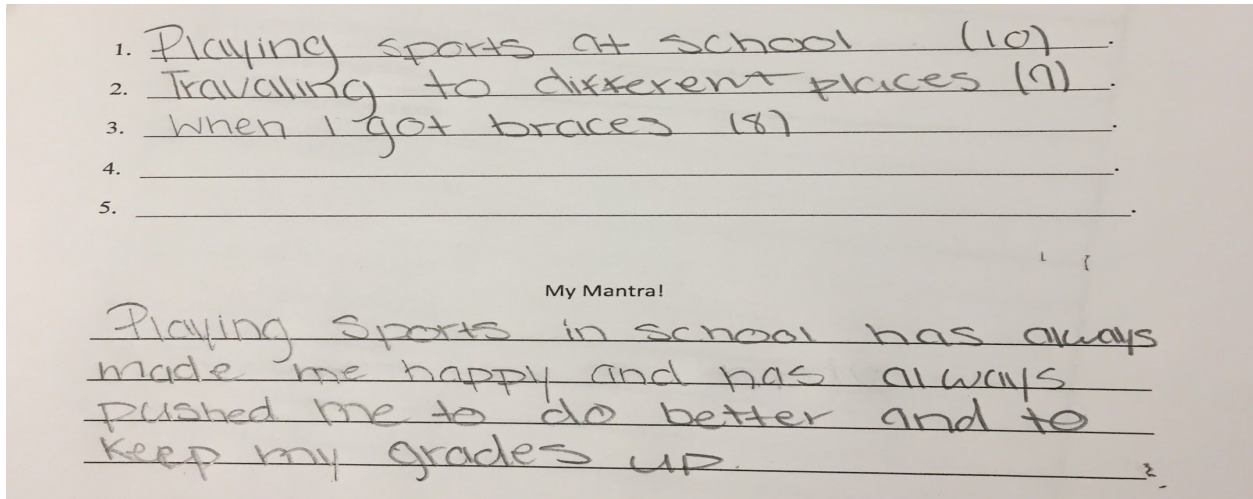 1. Playing sports at school (10).
2. Travaling to different places (9).
3. When I got braces (8).
4. .
5. .
My Mantra!
Playing sports in school has always
made me happy and has always
pushed me to do better and to
keep my grades up.